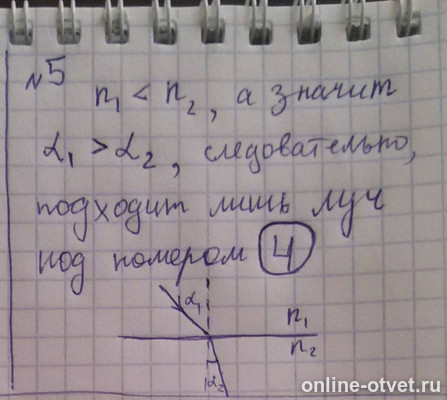 №5
n₁ < n₂, а значит
α₁ > α₂, следовательно,
подходит лишь луч
под номером 4
α₁
n₁
n₂
α₂
online-otvet.ru